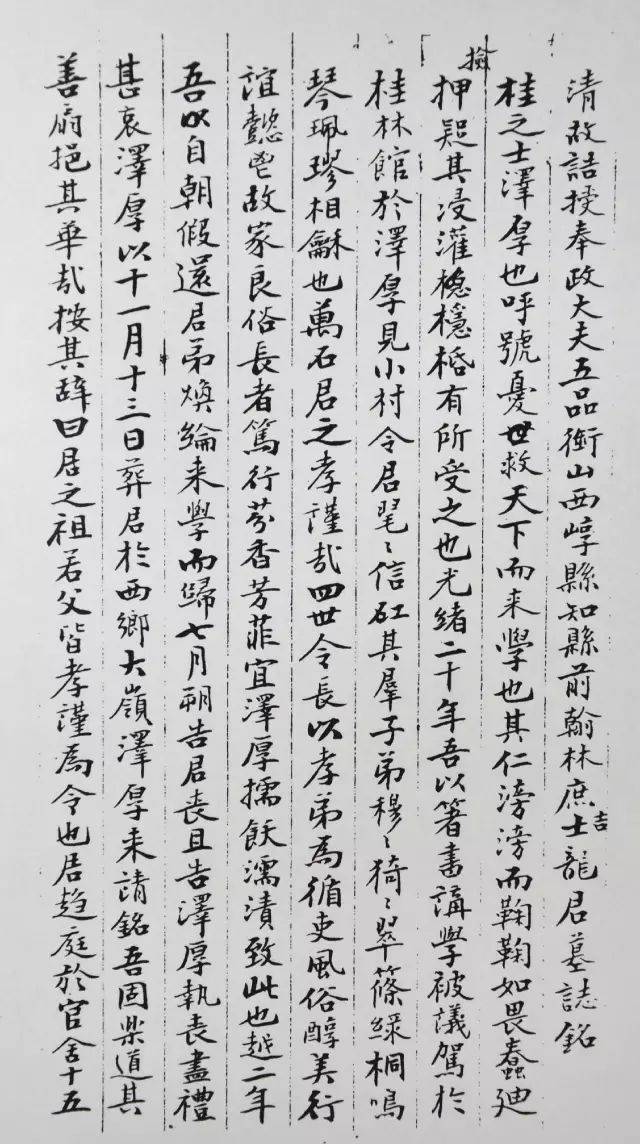 清故誥授奉政大夫五品銜山西崞縣知縣前翰林庶吉士龍君墓誌銘
桂之士澤厚也呼號憂世救天下而来學也其仁滂滂而鞠鞠如畏蠢迪
撿押疑其浸灌穩柢有所受之也光緒二十年吾以箸書講學被議駕於
桂林館於澤厚見小村令君毣〻信矼其羣子弟穆〻猗〻翠篠綠桐鳴
琴珮璆相龢也萬石君之孝謹哉四世令長以孝弟為循吏風俗醇美行
誼懿鬯故家良俗長者篤行芬香芳菲宜澤厚擩飫濡漬致此也越二年
吾以自朝假還君弟煥綸来學而歸七月朔告君喪且告澤厚執喪盡禮
甚哀澤厚以十一月十三日葬君於西鄉大嶺澤厚来請銘吾固樂道其
善扇挹其華哉按其辭曰君之祖若父皆孝謹為令也君趨庭於官舍十五